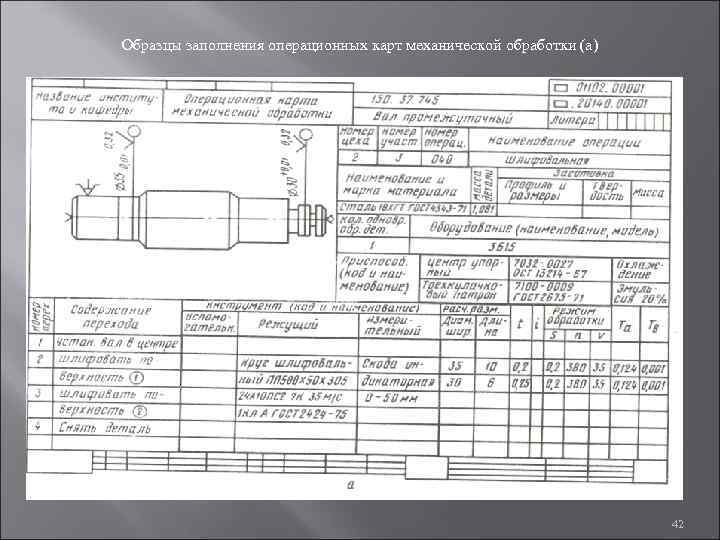 Образцы заполнения операционных карт механической обработки (а)
Название институ-
та и кафедры
Операционная карта
механической обработки
150. 37. 745
Вал промежуточный
01102.00001
.20140.00001
Литера
0,32
0,32
Номер
цеха
Номер
участ.
Номер
операц.
Наименование операции
2
3
040
шлифовальная
Наименование и
марка материала
Масса
детали
Заготовка
Профиль и
размеры
Твер-
дость
Масса
Сталь 18ХГТ ГОСТ4543-71
1,081
Кол. одновр.
обр. дет.
Оборудование (наименование, модель)
1
3Б15
Приспособ.
(код и наи-
менование)
Центр упор-
ный
7032-0027
ОСТ 13214-57
Охлаж-
дение
Трехкулачко-
вый патрон
7100-0009
ГОСТ2675-71
Эмуль-
сия 20%
Номер
перех.
Содержание
перехода
Инструмент (код и наименование)
Вспома-
гательн.
Режущий
Измери-
тельный
Расч. разм.
Диам.
шир.
Дли-
на
t
i
Режим
обработки
S
n
v
То
Тв
1
Устан. вал в центре
2
Шлифовать по-
верхность ①
Круг шлифоваль-
ный ПП500×50×305
Скоба ин-
дикаторная
35
10
0,2
0,2
380
35
0,124
0,001
30
6
0,25
0,2
380
35
0,124
0,001
3
Шлифовать по-
верхность ②
0-50мм
1кл А ГОСТ2424-75
4
Снять деталь
а
42